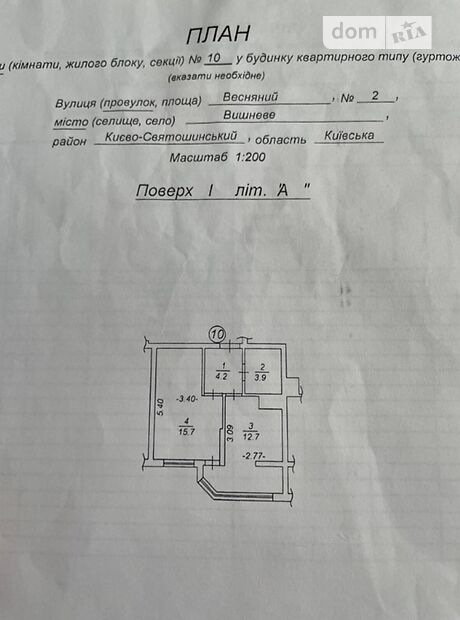 dom RIA
ПЛАН
и (кімнати, жилого блоку, секції) № 10 у будинку квартирного типу (гуртож
(вказати необхідне)
Вулиця (провулок, площа) Весняний, № 2,
місто (селище, село) Вишневе,
район Києво-Святошинський, область Київська
Масштаб 1:200
Поверх І літ. "А"
10
1
4.2
2
3.9
5.40
-3.40-
4
15.7
3.09
3
12.7
-2.77-